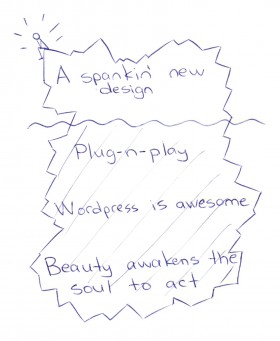 A spankin' new
design
Plug-n-play
Wordpress is awesome
Beauty awakens the
soul to act